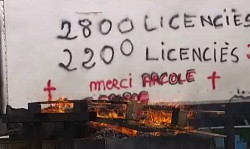 2800 LICENCIÉS
2200 LICENCIÉS
merci ARCOLE